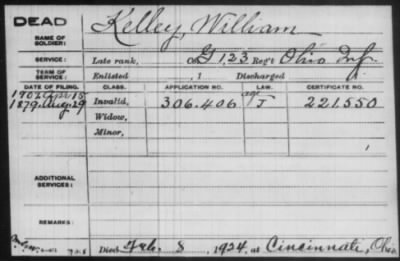 DEAD
NAME OF SOLDIER: Kelley, William
SERVICE: Late rank, Co G, 123 Reg't Ohio Inf.
TERM OF SERVICE: Enlisted , 1 Discharged , 1
DATE OF FILING. CLASS. APPLICATION NO. LAW. CERTIFICATE NO.
1902 Apr 15 age
1879. Aug 29 Invalid, 306.406 J 221.550
Widow,
Minor,
ADDITIONAL SERVICES:
REMARKS:
Died Feb. 8, 1924, at Cincinnati, Ohio